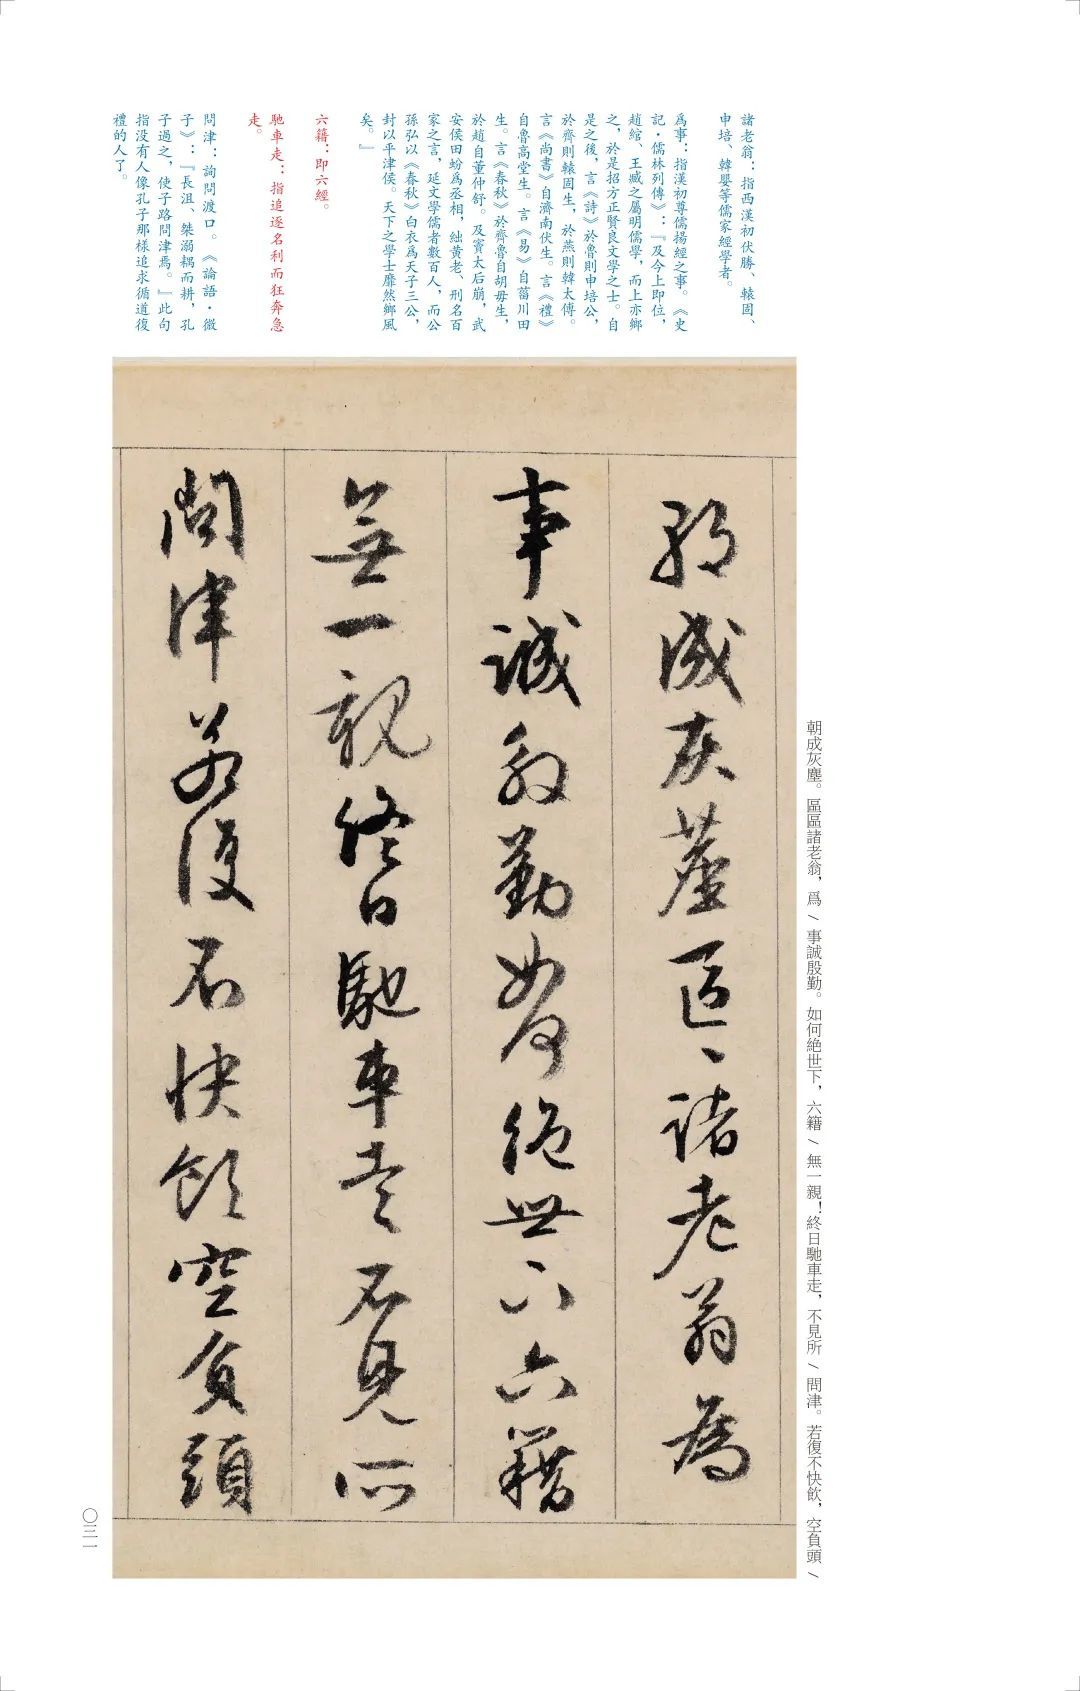 諸老翁：指西漢初伏勝、轅固、
申培、韓嬰等儒家經學者。
爲事：指漢初尊儒揚經之事。《史
記·儒林列傳》：『及今上即位，
趙綰、王臧之屬明儒學，而上亦鄉
之，於是招方正賢良文學之士。自
是之後，言《詩》於魯則申培公，
於齊則轅固生，於燕則韓太傅。
言《尚書》自濟南伏生。言《禮》
自魯高堂生。言《易》自菑川田
生。言《春秋》於齊魯自胡毋生，
於趙自董仲舒。及竇太后崩，武
安侯田蚡爲丞相，絀黃老、刑名百
家之言，延文學儒者數百人，而公
孫弘以《春秋》白衣爲天子三公，
封以平津侯。天下之學士靡然鄉風
矣。』
六籍：即六經。
馳車走：指追逐名利而狂奔急
走。
問津：詢問渡口。《論語·微
子》：『長沮、桀溺耦而耕，孔
子過之，使子路問津焉。』此句
指没有人像孔子那樣追求循道復
禮的人了。
朝成灰塵區〻諸老翁為
事誠殷勤如何絕世下六籍
無一親終日馳車走不見所
問津若復不快飲空負頭
朝成灰塵。區區諸老翁，爲/事誠殷勤。如何絶世下，六籍/無一親！終日馳車走，不見所/問津。若復不快飲，空負頭/
〇三一